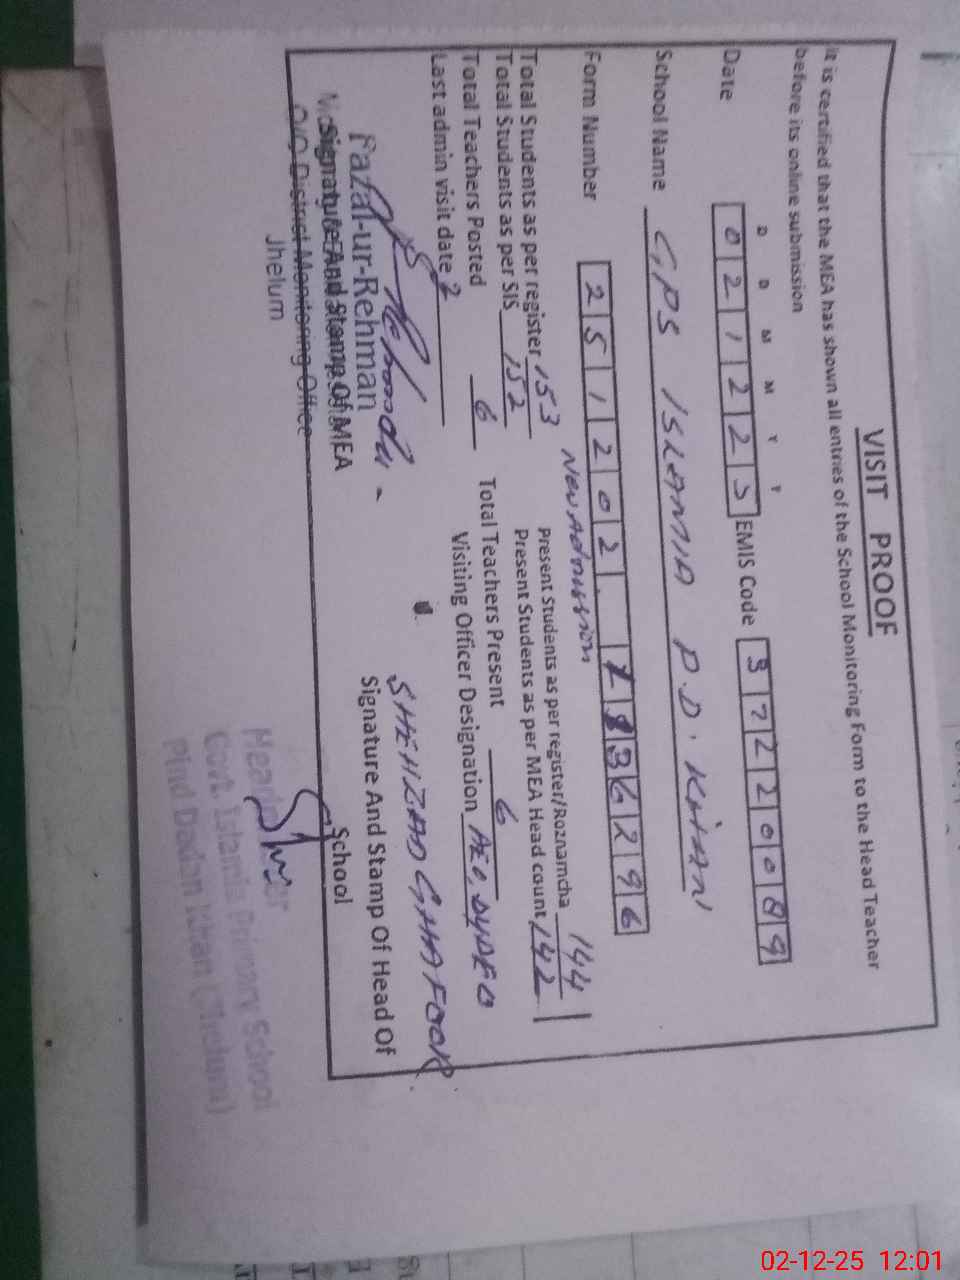 VISIT PROOF
it is certified that the MEA has shown all entries of the School Monitoring Form to the Head Teacher
before its online submission
D D M M Y Y
Date 0 2 1 2 2 5 EMIS Code 3 7 2 2 0 0 8 9
School Name GPS ISLAMIA P.D. KHAN
Form Number 2 5 1 2 0 2 3 6 2 9 6
New Admission
Total Students as per register 153 Present Students as per register/Roznamcha 144
Total Students as per SIS 152 Present Students as per MEA Head count 142
Total Teachers Posted 6 Total Teachers Present 6
Last admin visit date Visiting Officer Designation AEO, DYDEO
SHEHZAD GHAFOOR
Fazal-ur-Rehman
Signature And Stamp Of MEA Signature And Stamp Of Head Of
School
O/O District Monitoring Office
Jhelum
Govt. Islamia Primary School
Pind Dadan Khan (Jhelum)
02-12-25 12:01